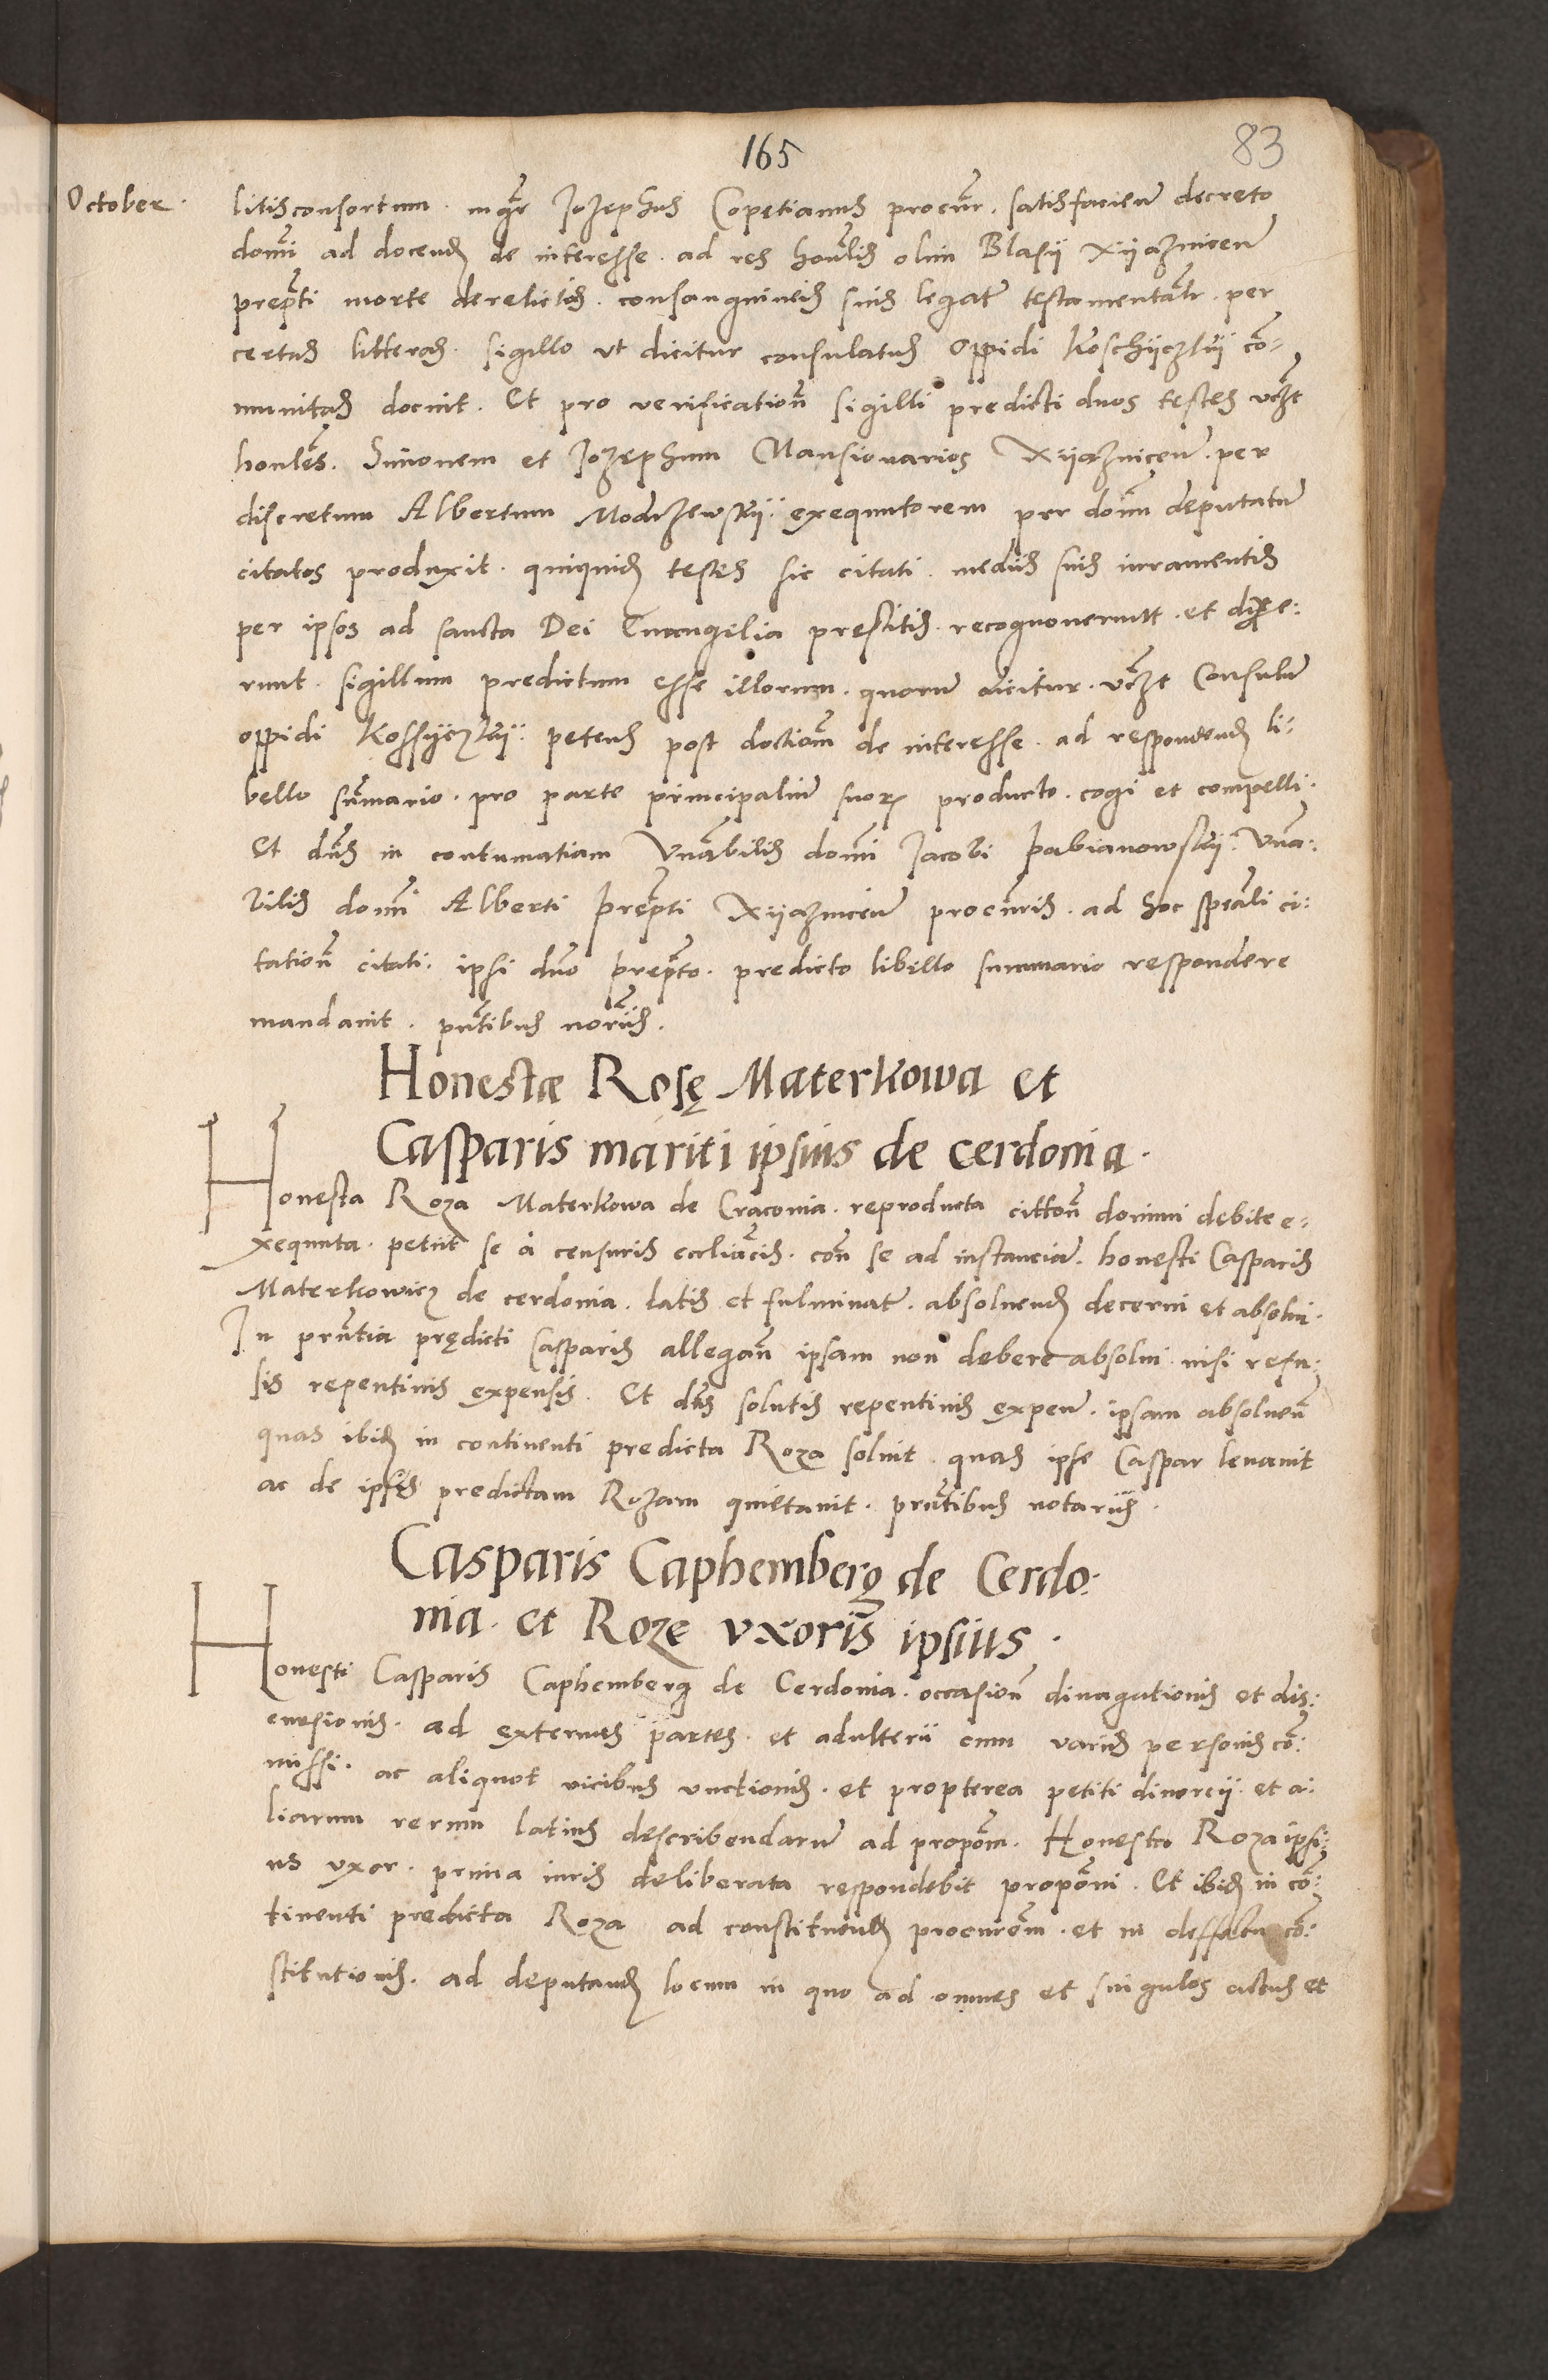 165
83
October.
litisconsortum. mgr̃ Jozephus Copetianus procur̃. satisfacien̄ decreto
domĩ ad docenđ de interesse. ad res honlis̃ olim Blasij Xijąznicen̄
prep̃ti morte derelictas. consanguineis suis legať testamentalr̃. per
certas litteras. sigillo vt dicitur consulatus oppidi Koschijczkij cō-
munitas docuit. Et pro verification̄ sigilli predicti duos testes vcz̃t
honles̃. Simonem et Jozephum Mansionarios Xijąznicen̄. per
discretum Albertum Modrzewskij. exequutorem per domĩ deputatū
citatos produxit. quiquiđ testes sic citati. mediis suis iuramentis
per ipsos ad sancta Dei Euangelia prestitis. recognouerunt. et dixe:
runt. sigillum predictum esse illorum. quorū dicitur. vcz̃t Consulū
oppidi Kossijczkij. petens post doctiom̃ de interesse. ad respondenđ li-
bello sum̄ario. pro parte principaliū suorꝫ producto. cogi et compelli.
Et dñs in contumatiam Vnãbilis domĩ Jacobi Pabianowskij. Vnã:
bilis domĩ Alberti prep̃ti Xijąznicen̄ procuris̃. ad hoc speãli ci:
tation̄ citati. ipsi dño prep̃to. predicto libello summario respondere
mandauit. pñtibus nor̃iis.
Honestæ Rosę Materkowa et
Casparis mariti ipsius de cerdonia.
Honesta Roza Materkowa de Cracouia. reproducta cittõn domini debite e-
xequuta. petiit se à censuris eccliãcis. con̄ se ad instanciā. honesti Casparis
Materkowicz de cerdonia. latis et fulminať. absoluenđ decerni et absolui.
In prñtia prędicti Casparis allegan̄ ipsam non debere absolui nisi refu-
sis repentinis expensis. Et dñs solutis repentinis expen̄. ipsam absoluen̄
quas ibiđ in continenti predicta Roza soluit. quas ipse Caspar leuauit
ac de ipsis predictam Rozam quietauit. prñtibus notariis.
Casparis Caphemberg de Cerdo:
nia. et Roze vxoris ipsius.
Honesti Casparis Caphemberg de Cerdonia. occasion̄ diuagationis et dis:
cursionis. ad externas partes. et adulterii cum variis personis cō:
missi. ac aliquot vicibus vnctionis. et propterea petiti diuorcij. et a:
liarum rerum latius describendarū ad propõm. Honesta Roza ipsi:
us vxor. prima iuris deliberata respondebit propõni. Et ibiđ in cō:
tinenti predicta Roza ad constituenđ procurẽm. et in deffectu cō:
stitutionis. ad deputanđ locum in quo ad omnes et singulos actus et